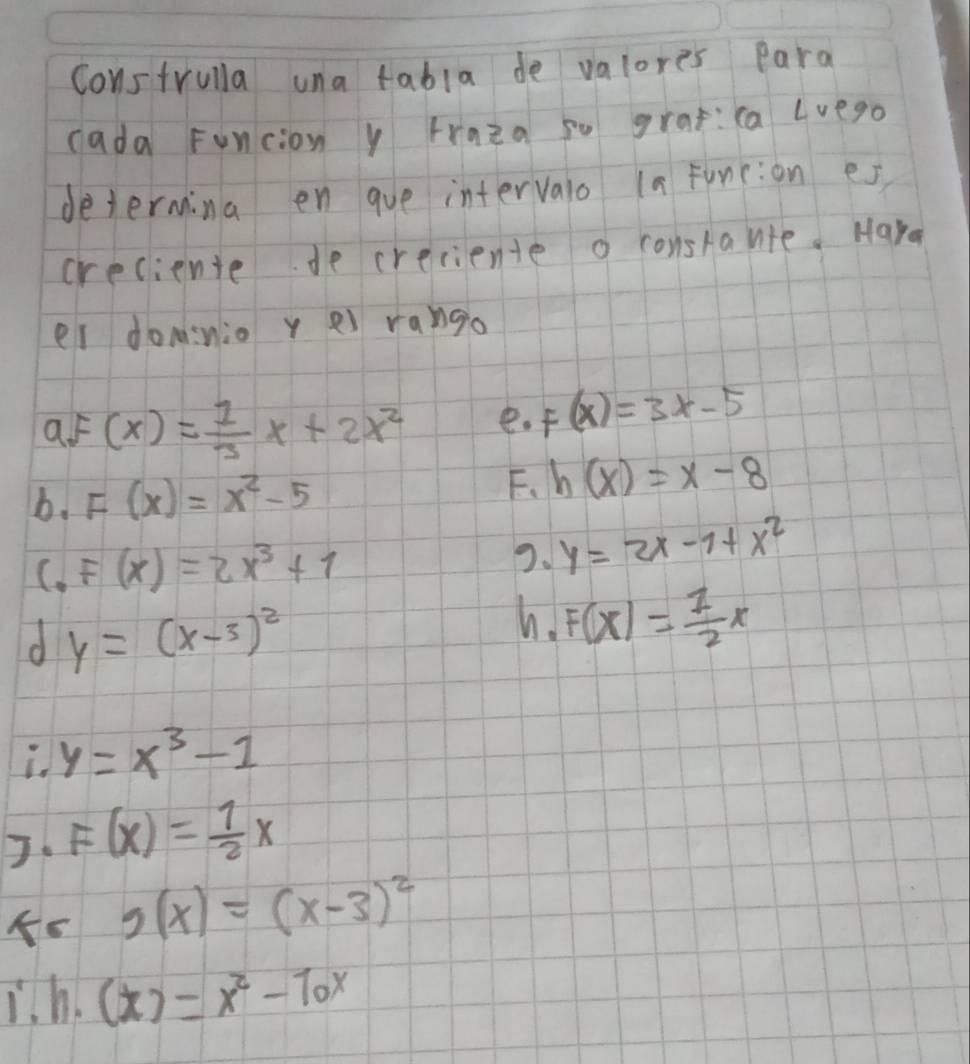 Construlla una tabla de valores Para
cada Funcion y traza su grafica Luego
determina en que intervalo la Funcion es
creciente .de creciente o constante. Hara
el dominio y el rango
a. F(x) = 1/3 x + 2x² e. F(x) = 3x - 5
b. F(x) = x² - 5 F. h(x) = x - 8
c. F(x) = 2x³ + 1 g. y = 2x - 1 + x²
d y = (x-3)² h. F(x) = 1/2 x
i. y = x³ - 1
J. F(x) = 1/2 x
K. g(x) = (x-3)²
l. h. (x) = x² - 10x